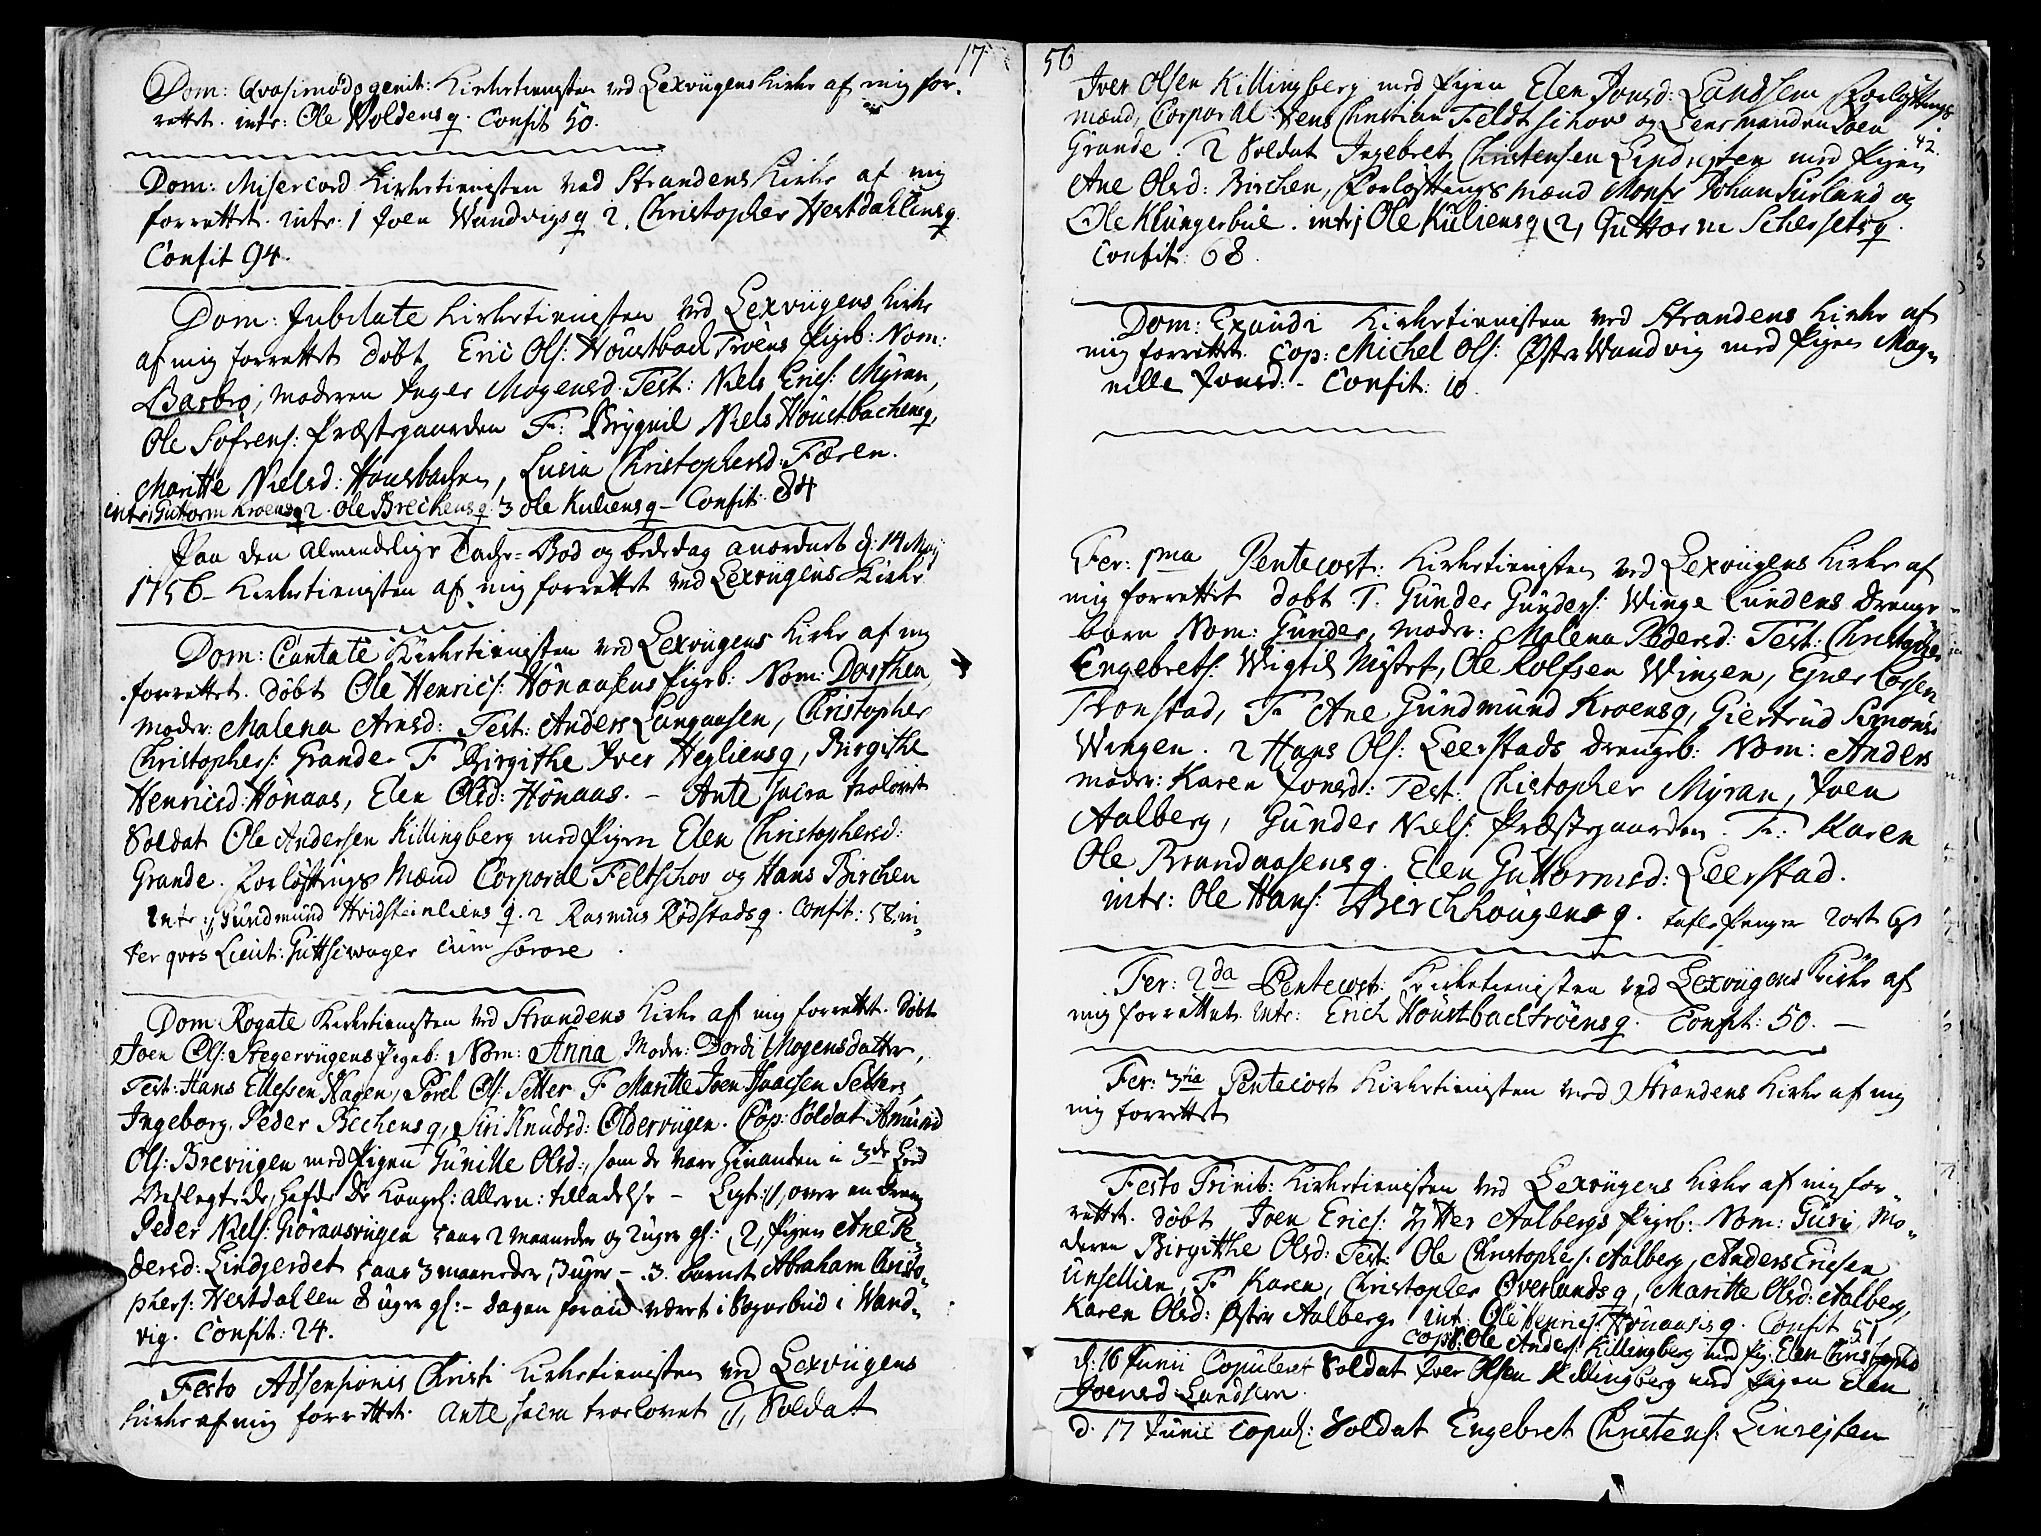 17
Dom: Qvasimodogenit: Kirketienesten ved Lexviigens Kirke af mig for-
rettet. intr: Ole Woldens q. Confit 50.
Dom: Misericord Kirketienesten ved Strandens Kirke af mig
forrettet. intr. 1 Joen Wandvigs q 2. Christopher Westdahlens q.
Confit 94.
Dom: Jubilate Kirketienesten ved Lexviigens Kirke
af mig forrettet döbt Eric Ols: Houstbach Troens Pigeb: Nom:
Barbro, moderen Inger Mogensd. Test: Niels Erics: Myran,
Ole Sofrens: Præstegaarden F: Brygnil Niels Houstbachens q,
Maritte Nielsd: Housbachen, Lucia Christophersd: Færen.
intr: 1 Guttorm Kroens q 2. Ole Brechens q. 3 Ole Kuliens q - Confit: 84
Paa den almindelige Tacke-Bod og bededag anordnet d: 14 Maij
1756 - Kirketienesten af mig forrettet ved Lexviigens Kirke
Dom: Cantate Kirketienesten ved Lexviigens Kirke af mig
forrettet. döbt Ole Henrics: Hönaasens Pigeb: Nom: Dorthea,
moder: Malena Arnsd: Test: Anders Langaasen, Christopher
Christophers: Grande F Birgithe Iver Hegliens q, Birgithe
Henricsd: Hönaas, Elen Olsd: Hönaas. - Ante sacra trolovet
Soldat Ole Andersen Killingberg med Pigen Elen Christophersd:
Grande. Forlöftnings Mænd Corporal Feltschov og Hans Birchen
Intr: 1, Gundmund Hvidsteinliens q. 2 Rasmus Rödstads q. Confit: 58 in-
ter qvos Lieut: Guttsewager cum sorore
Dom Rogate Kirketienesten ved Strandens Kirke af mig forrettet. döbt
Joen Ols: Stegerviigens Pigeb: Nom: Anna Moder: Dordi Mogensdatter,
Test: Hans Ellefsen Hagen, Porel Ols: Setter F Maritte Joen Isacsen Setters
Ingeborg Peder Bechens q, Siri Knudsd: Olderviigen. Cop: Soldat Amund
Ols: Breviigen med Pigen Gunille Olsd:, som de vare hinanden i 3de Leed
Beslegtede, hafde de Kongel: allern: tilladelse - Ligt: 1, over en dreng
Peder Niels: Giöraasviigen 5 aar 2 maaneder og 2 uger gl: 2, Pigen Ane Pe-
dersd: Lindjerdet 5 aar 3 maaneder, 3 uger - . 3. barnet Abraham Christo-
phers: Westdahlen 8 uger gl: - dagen forud været i Sognebud i Wand-
vig. Confit: 24.
Festo Adsensionis Christi Kirketienesten ved Lexviigens
Kirke af mig forrettet. Ante sacra troelovet 1, Soldat
56
Iver Olsen Killingberg med Pigen Elen Jonsd: Landsem Forlöftnings
mænd, Corporal Jens Christian Feldtschov og Lensmanden Joen
42.
Grande. 2 Soldat Ingebret Christensen Lindrejten med Pigen
Ane Olsd: Birchen, Forlöftnings mænd Monsr Johan Surland og
Ole Klungerbue. intr 1 Ole Kuliens q 2, Guttorm Schersets q.
Confit: 68.
Dom: Exaudi Kirketienesten ved Strandens Kirke af
mig forrettet. Cop: Michel Ols: Öster Wandvig med Pigen Mag-
nille Jonsd: - Confit: 10.
Fer: 1ma Pentecost: Kirketienesten ved Lexviigens Kirke af
mig forrettet döbt 1. Gunder Gunders: Winge lundens Drenge
barn Nom: Gunder, moder: Malena Pedersd: Test: Christopher
Engebrets: Wigtil Mystet, Ole Rolfsen Wingen, Ejner Larsen
Tronstad, F Ane Gundmund Kroens q, Giertrud Simonsd
Wingen. 2 Hans Ols: Leerstads drengeb: Nom: Anders
moder: Karen Jonsd: Test: Christopher Myran, Joen
Aalberg, Gunder Niels: Præstegaarden. F: Karen
Ole Brandaasens q. Elen Guttormsd: Leerstad.
intr: Ole Hans: Birchhougens q. tafle Penger 2 ort 6 s
Fer: 2da Pentecost: Kirketienesten ved Lexviigens Kirke af
mig forrettet. Intr: Erich Houstbachtröens q. Confit: 50. -
Fer: 3tia Pentecost Kirketienesten ved Strandens Kirke af mig
mig forrettet
Festo Trinit: Kirketienesten ved Lexviigens Kirke af mig for-
rettet. döbt Joen Erics: Ytter Aalbergs Pigeb: Nom: Guri, Mo-
deren Birgithe Olsd: Test: Ole Christophers: Aalberg, Anders Ericsen
Unsellien, F Karen, Christopher Overlands q, Maritte Olsd: Aalberg,
Karen Olsd: Öster Aalberg. int: Ole Henrics: Hönaasis q. Confit 51
Cop: Ole Anders: Killingberg med Pig: Elen Christophersd
d: 16 Junii Copuleret Soldat Iver Olsen Killingberg med Pigen Elen
Joensd Landsem.
d: 17 Junii Copul: Soldat Engebret Christens: Linrejten